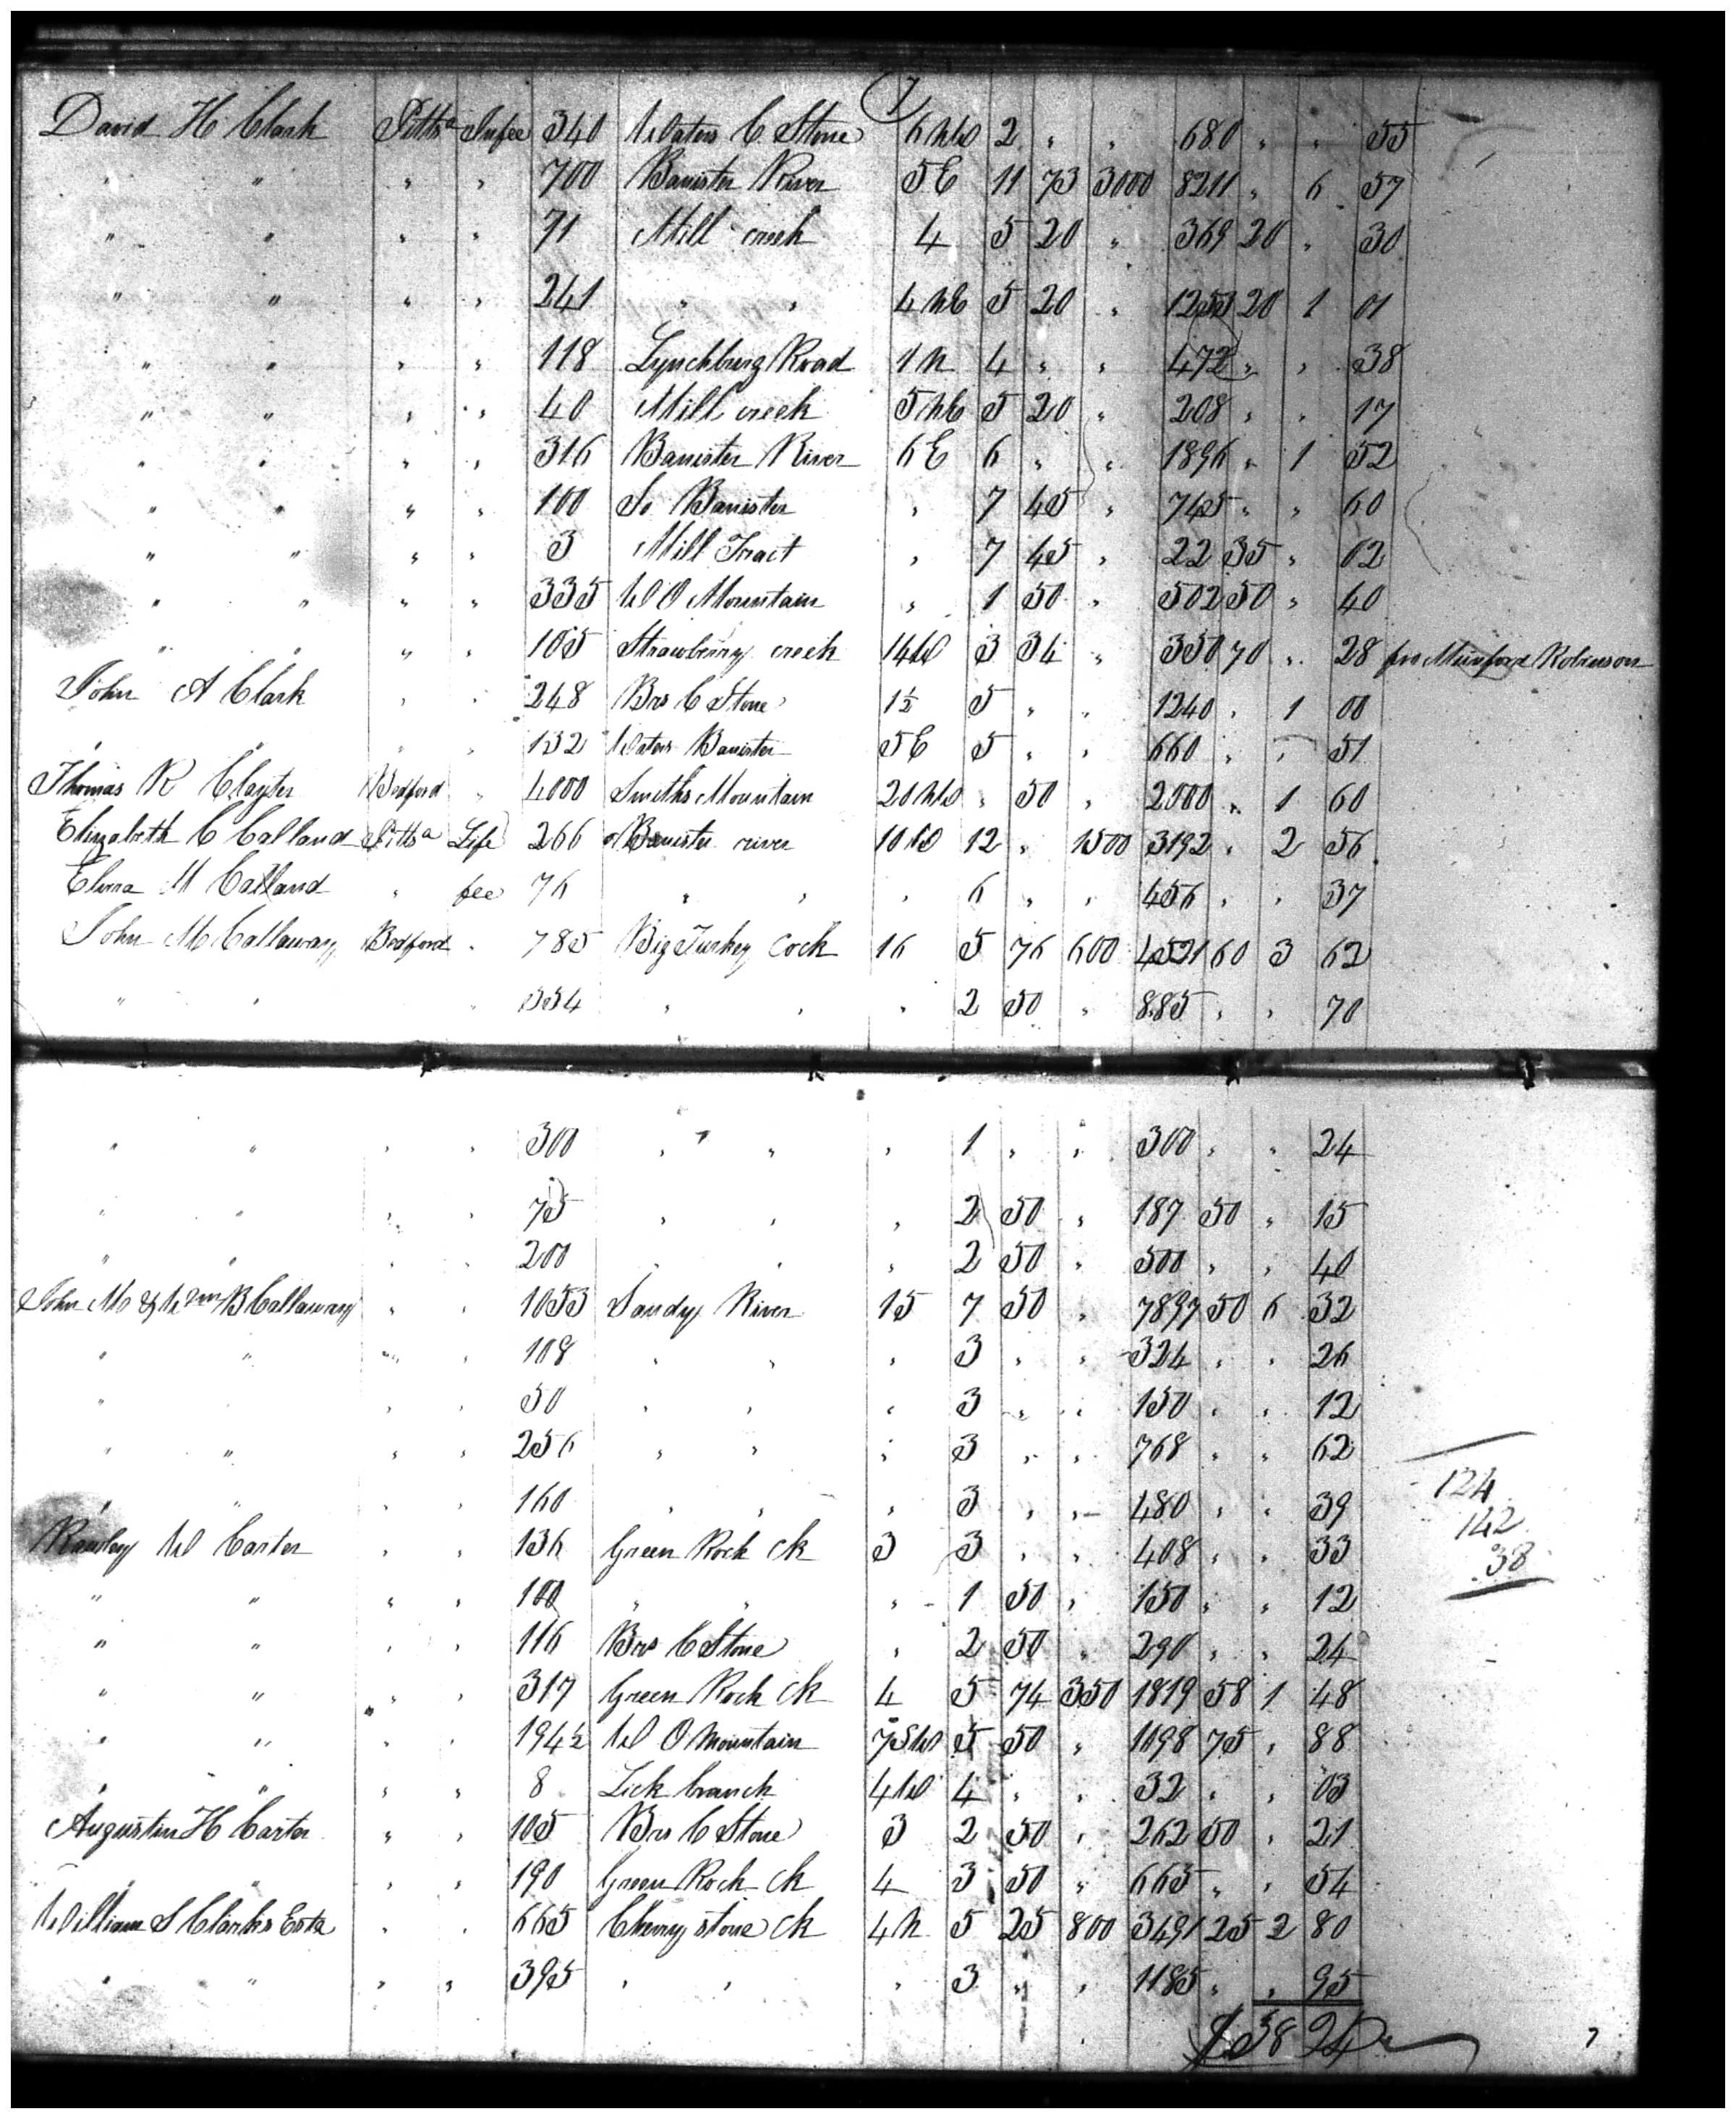 7
David H Clark Pittsa Infee 340 Waters C. Stone 6 NW 2 " " 680 " " 55
" " " " 700 Banister River 5E 11 73 3000 8211 " 6 57
" " " " 71 Mill creek 4 5 20 " 369 20 " 30
" " " " 241 " " 4 NE 5 20 " 1253 20 1 01
" " " " 118 Lynchburg Road 1 N 4 " " 472 " " 38
" " " " 40 Mill creek 5 NE 5 20 " 208 " " 17
" " " " 316 Banister River 6 E 6 " " 1896 " 1 52
" " " " 100 So Banister " 7 45 " 745 " " 60
" " " " 3 Mill Tract " 7 45 " 22 35 " 02
" " " " 335 W O Mountain " 1 50 " 502 50 " 40
" " " " 105 Strawberry creek 14W 3 34 " 350 70 " 28 fm Munford Robinson
John A Clark " " 248 Brs C Stone 1½ 5 " " 1240 " 1 00
" " " " 132 Waters Banister 5E 5 " " 660 " " 51
Thomas R Clayter Bedford " 4000 Smiths Mountain 20 NW " 50 " 2000 " 1 60
Elizabeth C Calland Pittsa Life 266 Banister river 10 W 12 " 1500 3192 " 2 56
Elvira M Calland " fee 76 " " " 6 " " 456 " " 37
John M Callaway Bedford " 785 Big Turkey Cock 16 5 76 600 4521 60 3 62
" " " 354 " " " 2 50 " 885 " " 70
" " " " 300 " " " 1 " " 300 " " 24
" " " " 75 " " " 2 50 " 187 50 " 15
" " " " 200 " " " 2 50 " 500 " " 40
John M & Wm B Callaway " " 1053 Sandy River 15 7 50 " 7897 50 6 32
" " " " 108 " " " 3 " " 324 " " 26
" " " 50 " " " 3 " " 150 " " 12
" " " " 256 " " " 3 " " 768 " " 62
" " " " 160 " " " 3 " " 480 " " 39
124
142
38
Rawley W Carter " " 136 Green Rock ck 3 3 " " 408 " " 33
" " " " 100 " " " 1 50 " 150 " " 12
" " " " 116 Brs C Stone " 2 50 " 290 " " 24
" " " " 317 Green Rock ck 4 5 74 350 1819 58 1 48
" " " " 194½ W O Mountain 7SW 5 50 " 1198 75 " 88
" " " " 8 Lick branch 4W 4 " " 32 " " 03
Augustin H Carter " " 105 Brs C Stone 3 2 50 " 262 50 " 21
" " " " 190 Green Rock ck 4 3 50 " 665 " " 54
William S Clarks Este " " 665 Cherry stone ck 4 N 5 25 800 3491 25 2 80
" " " " 395 " " " 3 " " 1185 " " 95
$38 24
7